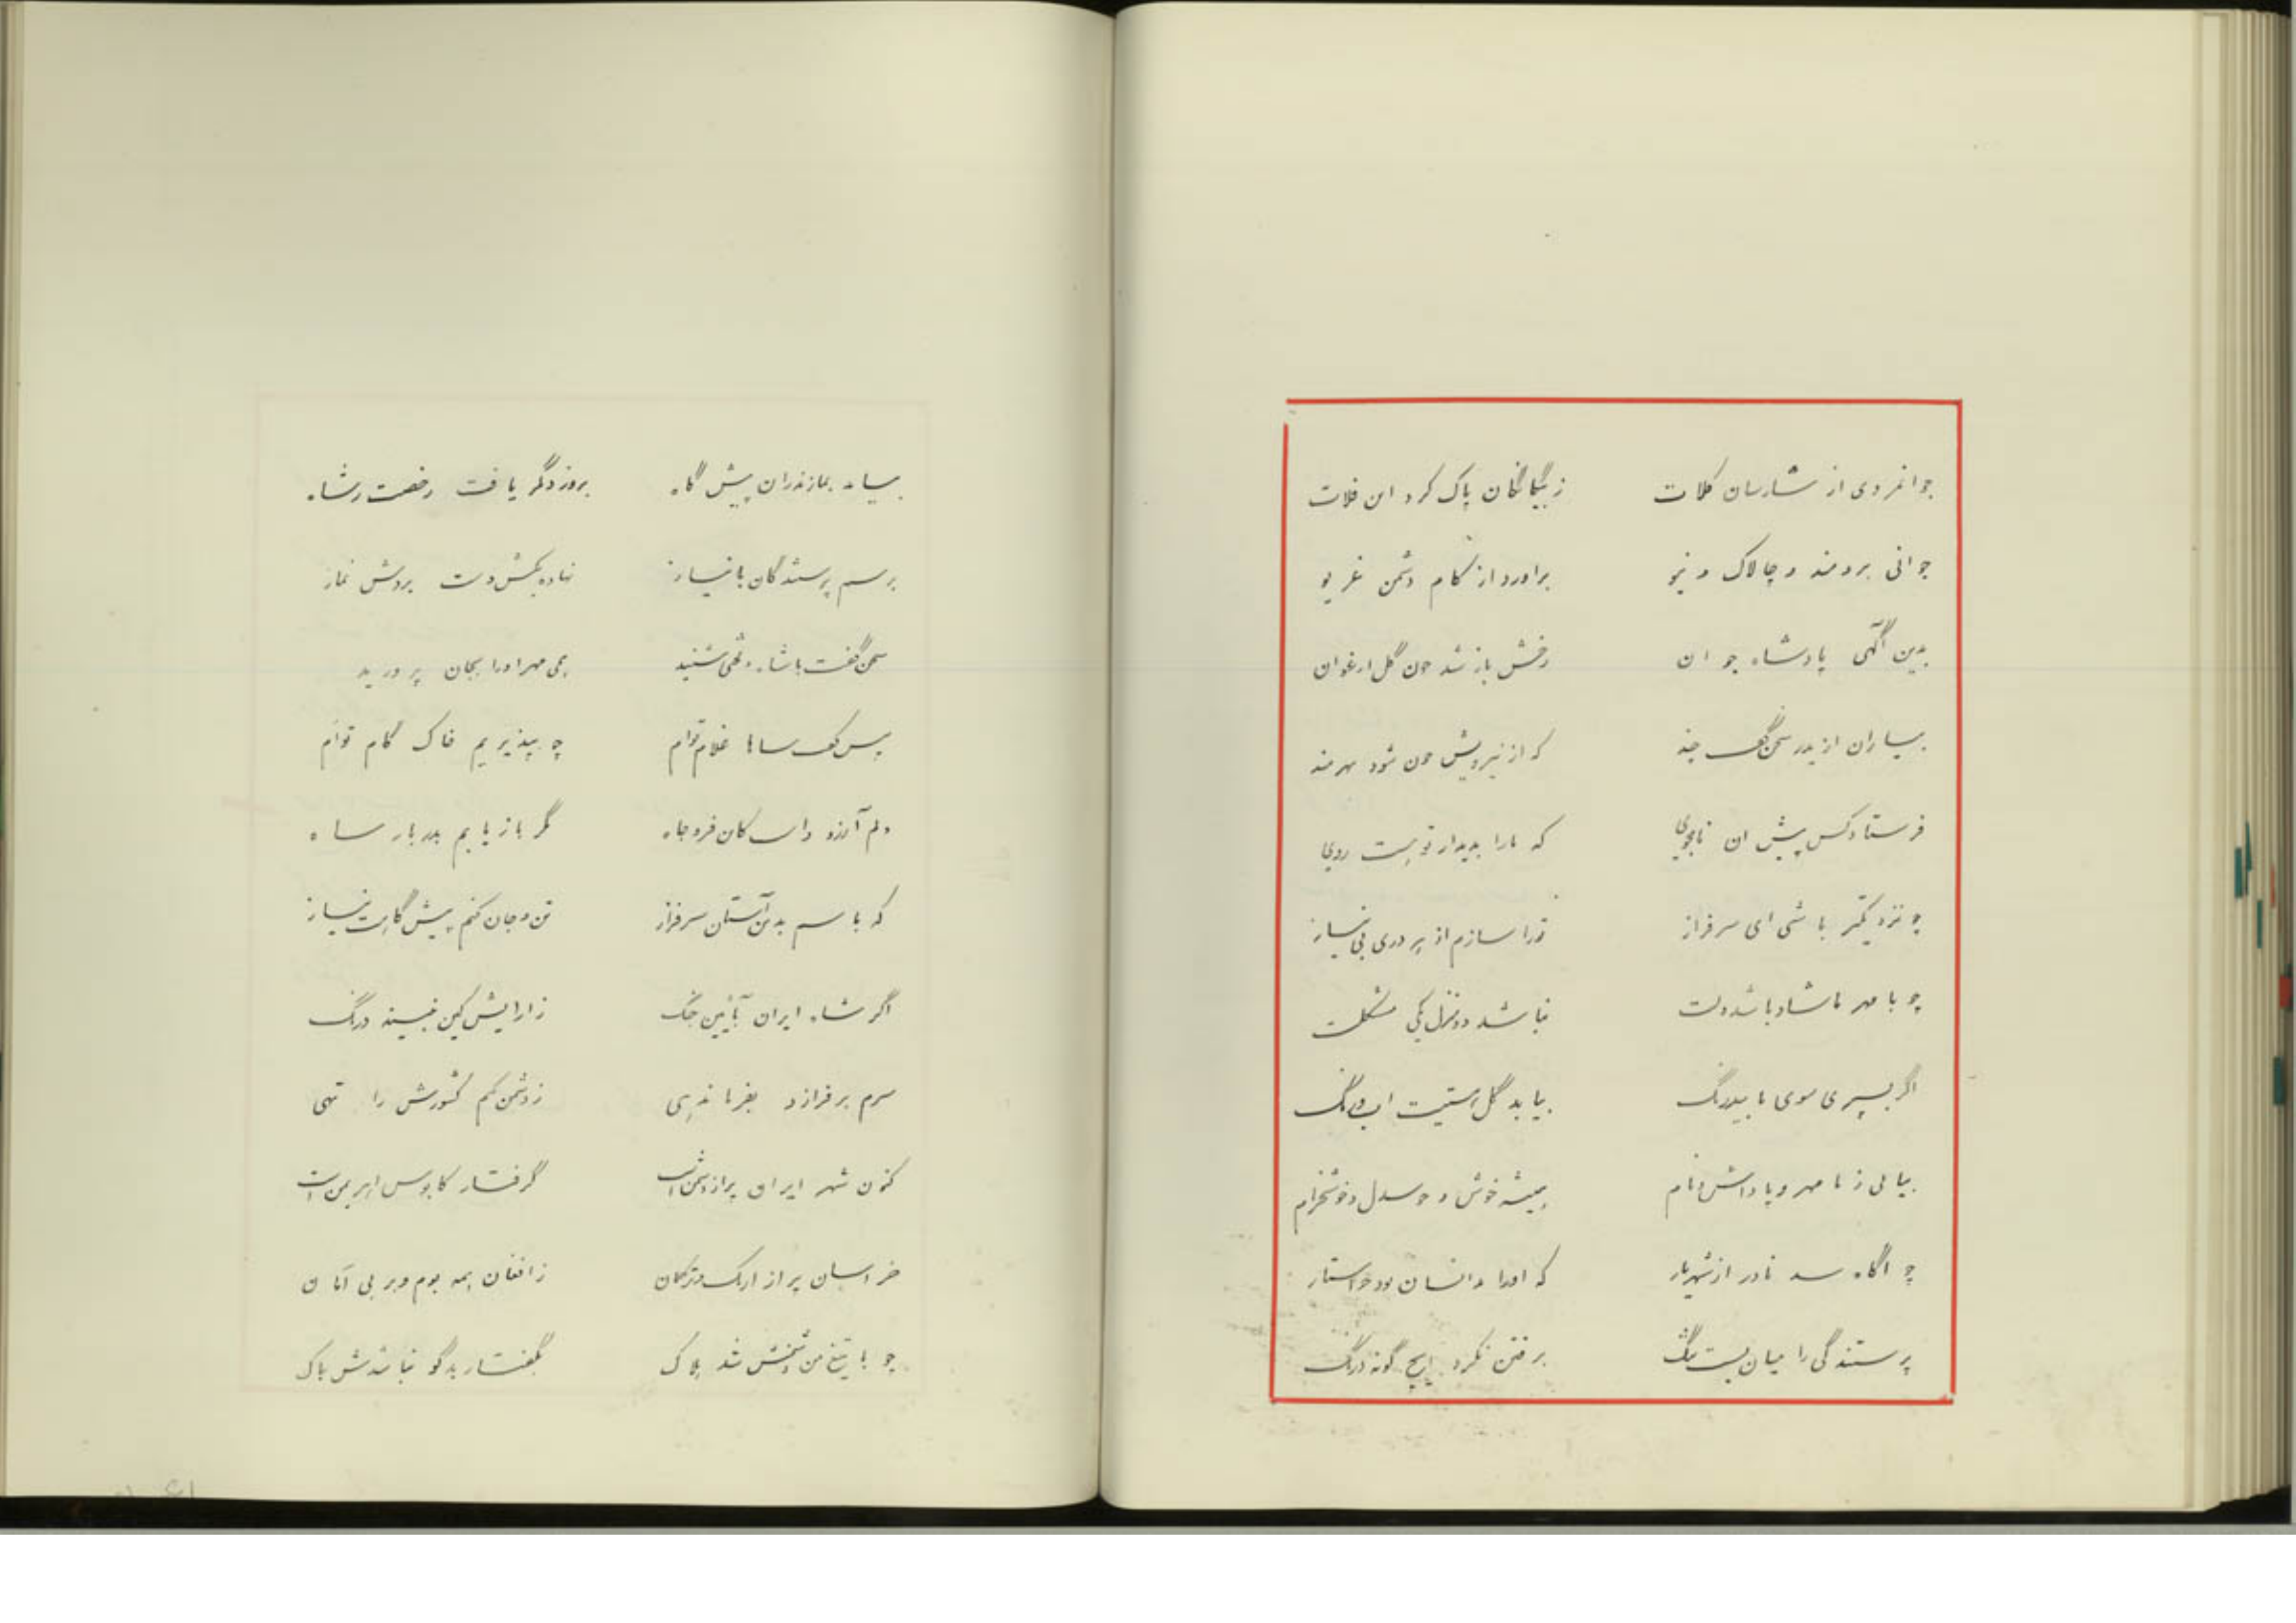 جوانمردی از شارسان کلات زبیگانگان پاک کرد این فلات
جوانی برومند و چالاک و نیو براورد از کام دشمن غریو
بدین آگهی پادشاه جوان رخش باز شد چون گل ارغوان
بیاران از پدر سخن گفت چند که از نیرویش چون شود بهرمند
فرستاد کس پیش ان نامجوی که مارا بدیدار تو هست روی
چو نزدیکتر باشی ای سرفراز تورا سازم از برتری بی نیاز
چو با مهر ما شاد باشد دلت نباشد دو منزل یکی مشکلت
اگر بسپری سوی ما بیدرنگ بیابد گل هستیت اب و رنگ
بیابی ز ما مهر و پاداش و نام همیشه خوش و دل و خوشخرام
چو اگاه شد نادر از شهریار که اورا بود خواستار
پرستندگی را میان بست تنگ برفتن نکرد ایچ گونه درنگ
بیامد بمازندران پیش گاه بروز دگر یافت رخصت زشاه
برسم پرستندگان با نیاز نهاده بکش دست بردش نماز
سخن گفت با شاه و شنید همی مهر اورا بجان پرورید
پس گفت شاها غلام توام چو بپذیریم خاک گام توام
دلم آرزو داشت کان فر و جاه مگر باز یابم بدربار شاه
که باشم بدین آستان سرفراز تن و جان کنم پیش گاهت نیاز
اگر شاه ایران بآئین جنگ ز ارایش کین نبیند درنگ
سرم برفرازد بفرماندهی زدشمن کنم کشورش را تهی
کنون شهر ایران پر از دشمن است گرفتار کابوس اهریمن است
خراسان پر از ازبک و ترکمان ز افغان همه بوم و بر بی امان
چو با تیغ من دشمنش شد هلاک بگفتار بدگو نباشدش باک